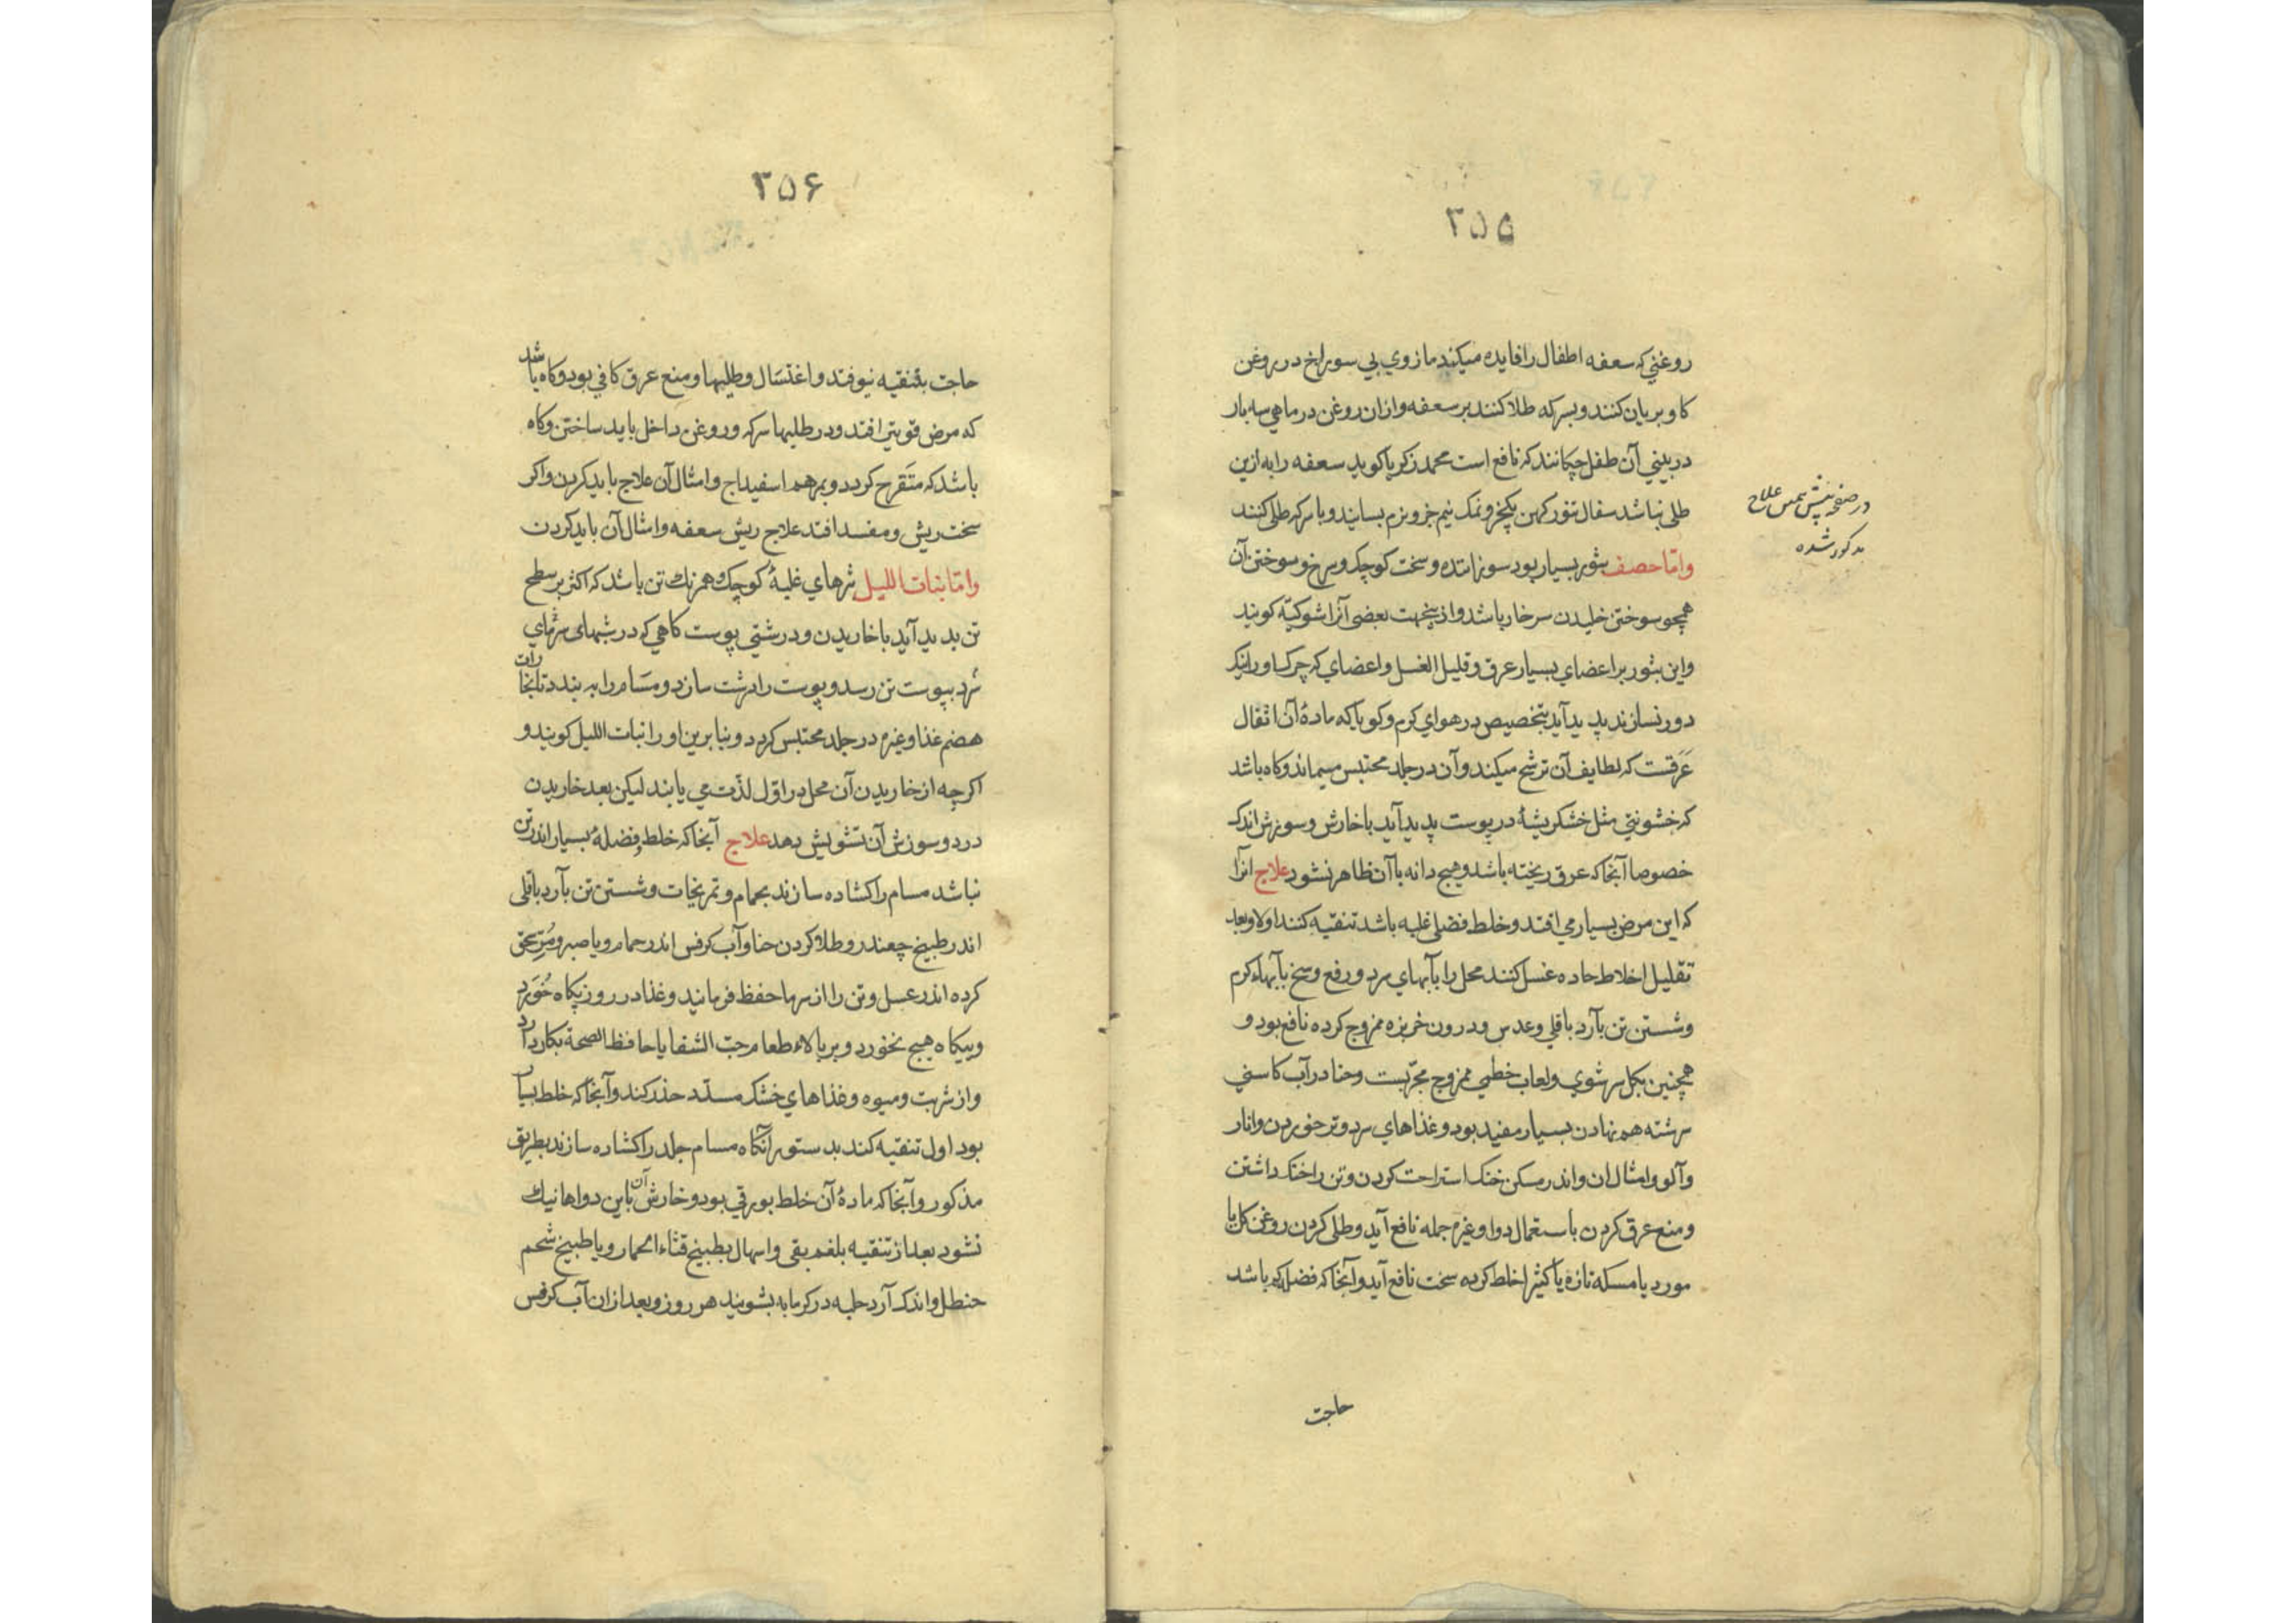 ۳۵۵
روغني که سعفه اطفال را فايده ميکند مازوي بي سوراخ در روغن
کاو بريان کنند و بسرکه طلا کنند بر سعفه و ازان روغن در ماهي سه بار
در بيني آن طفل چکانند که نافع است محمد زکريا کويد سعفه را به ازين
طلي نباشد سفال تنور کهن يکجزو نمک نيم جزو نرم بسايند و با سرکه طلي کنند
و امّا حصف بثور بسيار بود سوزاننده و سخت کوچک و سرخ و سوختن آن
همچو سوختن خليدن سر خار باشد و ازينجهت بعضي آنرا شوکيّه کويند
و اين بثور بر اعضاي بسيار عرق و قليل الغسل و اعضاي که چرک او را نيک
دور نسازند پديد آيد بتخصيص در هواي کرم و کويا که مادهٔ آن اثقال
عَرَقست که لطايف آن ترشح ميکند و آن در جلد محتبس ميماند و کاه باشد
که خشونتي مثل خشکريشهٔ در پوست پديد آيد با خارش و سوزش اندک
خصوصا آنجا که عرق ريخته باشد و هيچ دانه با آن ظاهر نشود علاج انرا
که اين مرض بسيار مي افتد و خلط فضلي غلبه باشد تنقيه کنند اولا و بعد
تقليل اخلاط حاده غسل کنند محل را بآبهاي سرد و رفع وسخ بآبهاء کرم
و شستن تن بآرد باقلي و عدس و درون خربزه ممزوج کرده نافع بود و
همچنين بکل سرشوي و لعاب خطمي ممزوج مجرّبست و حنا در آب کاسني
سرشته هم نهادن بسيار مفيد بود و غذاهاي سرد و تر خوردن و انار
و آلو و امثال ان و اندر مسکن خنک استراحت کردن و تن را خنک داشتن
و منع عرق کردن باستعمال دوا و غيره جمله نافع آيد و طلي کردن روغن کل يا
مورد يا مسکه تازه يا کثيرا خلط کرده سخت نافع آيد و آنجا که فضله کم باشد
حاجت
در صفحه پيش همين علاج
مذکور شده
۳۵۶
حاجت بتنقيه نيوفتد و اغتسال و طليها و منع عرق کافي بود و کاه باشد
که مرض قويتر افتد و در طليها سرکه و روغن داخل بايد ساختن و کاه
باشد که متقرح کردد و بمرهم اسفيداج و امثال آن علاج بايد کردن و اکر
سخت ريش و مفسد افتد علاج ريش سعفه و امثال آن بايد کردن
و امّا بنات الليل بثرهاي غلبهٔ کوچک و همرنک تن باشد که اکثر بر سطح
تن پديد آيد با خاريدن و درشتي پوست کاهي که در شبهاي سرماي
سرد بپوست تن رسد و پوست را درشت سازد و مسام را به بندد تا بخارات
هضم غذا و غيره در جلد محتبس کردد و بنابرين او را بنات الليل کويند و
اکرچه از خاريدن آن محل در اوّل لذّت مي يابند ليکن بعد خاريدن
درد و سوزش آن تشويش دهد علاج آنجا که خلط و فضلهٔ بسيار اندر تن
نباشد مسام را کشاده سازند بحمام و تمريخات و شستن تن بآرد باقلي
اندر طبيخ چغندر و طلا کردن حنا و آب کرفس اندر حمام و يا صبر و مُرّ سحق
کرده اندر عسل و تن را از سرما حفظ فرمايند و غذا در روز پکاه خُورَد
و بيکاه هيچ نخورد و بر بالاء طعام حبّ الشفا يا حافظ الصحة بکار دارد
و از شربت و ميوه و غذاهاي خشک مسدّد حذر کند و آنجا که خلط بسيار
بود اول تنقيه کند بدستور آنکاه مسام جلد را کشاده سازند بطريق
مذکور و آنجا که مادهٔ آن خلط بورقي بود و خارش آن باين دواها نيک
نشود بعد از تنقيه بلغم بقي و اسهال بطبيخ قثاء الحمار و يا طبيخ شحم
حنظل و اندک آرد حلبه در کرمابه بشويند هر روز و بعد ازان آب کرفس